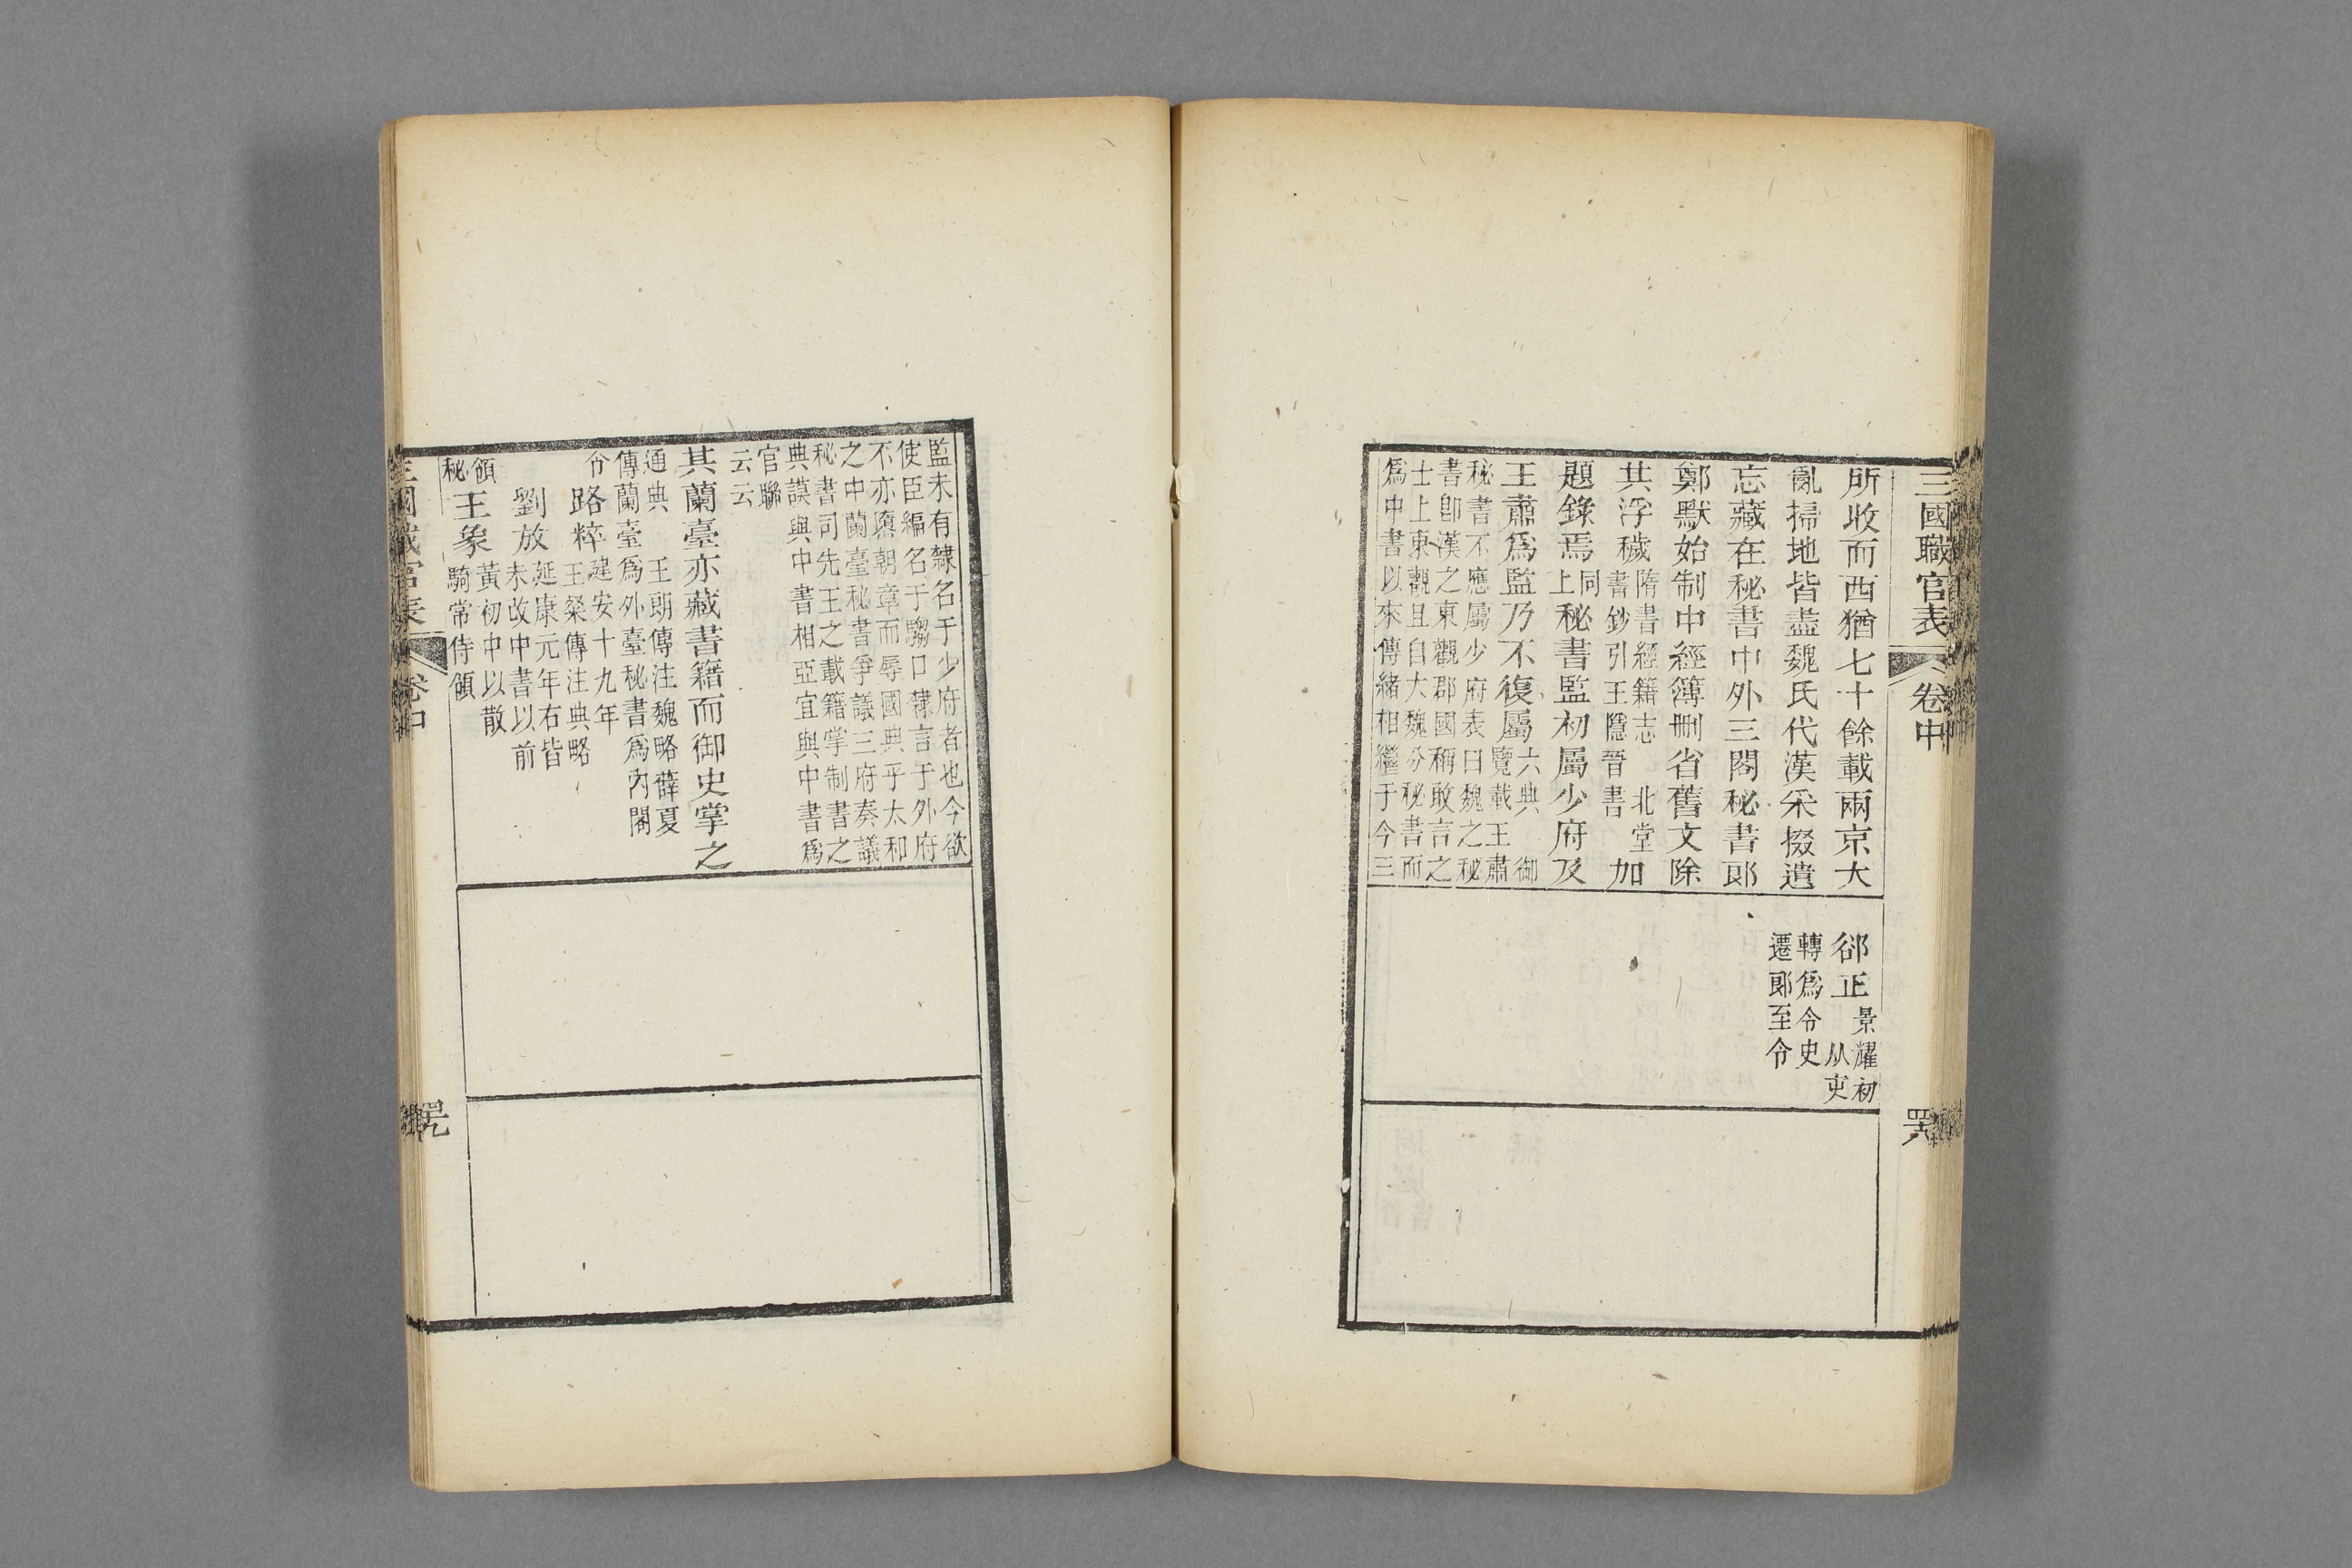 三國職官表
卷中
四八
所收而西猶七十餘載兩京大
亂掃地皆盡魏氏代漢采掇遺
忘藏在秘書中外三閣秘書郎
鄭默始制中經簿刪省舊文除
其浮穢隋書經籍志 北堂書鈔引王隱晉書加
題錄焉同上秘書監初屬少府及
王肅爲監乃不復屬六典 御覽載王肅
秘書不應屬少府表曰魏之秘
書卽漢之東觀郡國稱敢言之
士上東觀且自大魏分秘書而
爲中書以來傳緒相繼于今三
郤正景耀初从吏
轉爲令史
遷郞至令
監未有隸名于少府者也今欲
使臣編名于騶口隸言于外府
不亦隳朝章而辱國典乎太和
之中蘭臺秘書爭議三府奏議
秘書司先王之載籍掌制書之
典謨與中書相亞宜與中書爲
官聯
云云
其蘭臺亦藏書籍而御史掌之
通典 王朗傳注魏略薛夏
傳蘭臺爲外臺秘書爲內閣
令路粹建安十九年王粲傳注典略
劉放延康元年右皆未改中書以前
領秘王象黃初中以散騎常侍領
三國職官表
卷中
四九